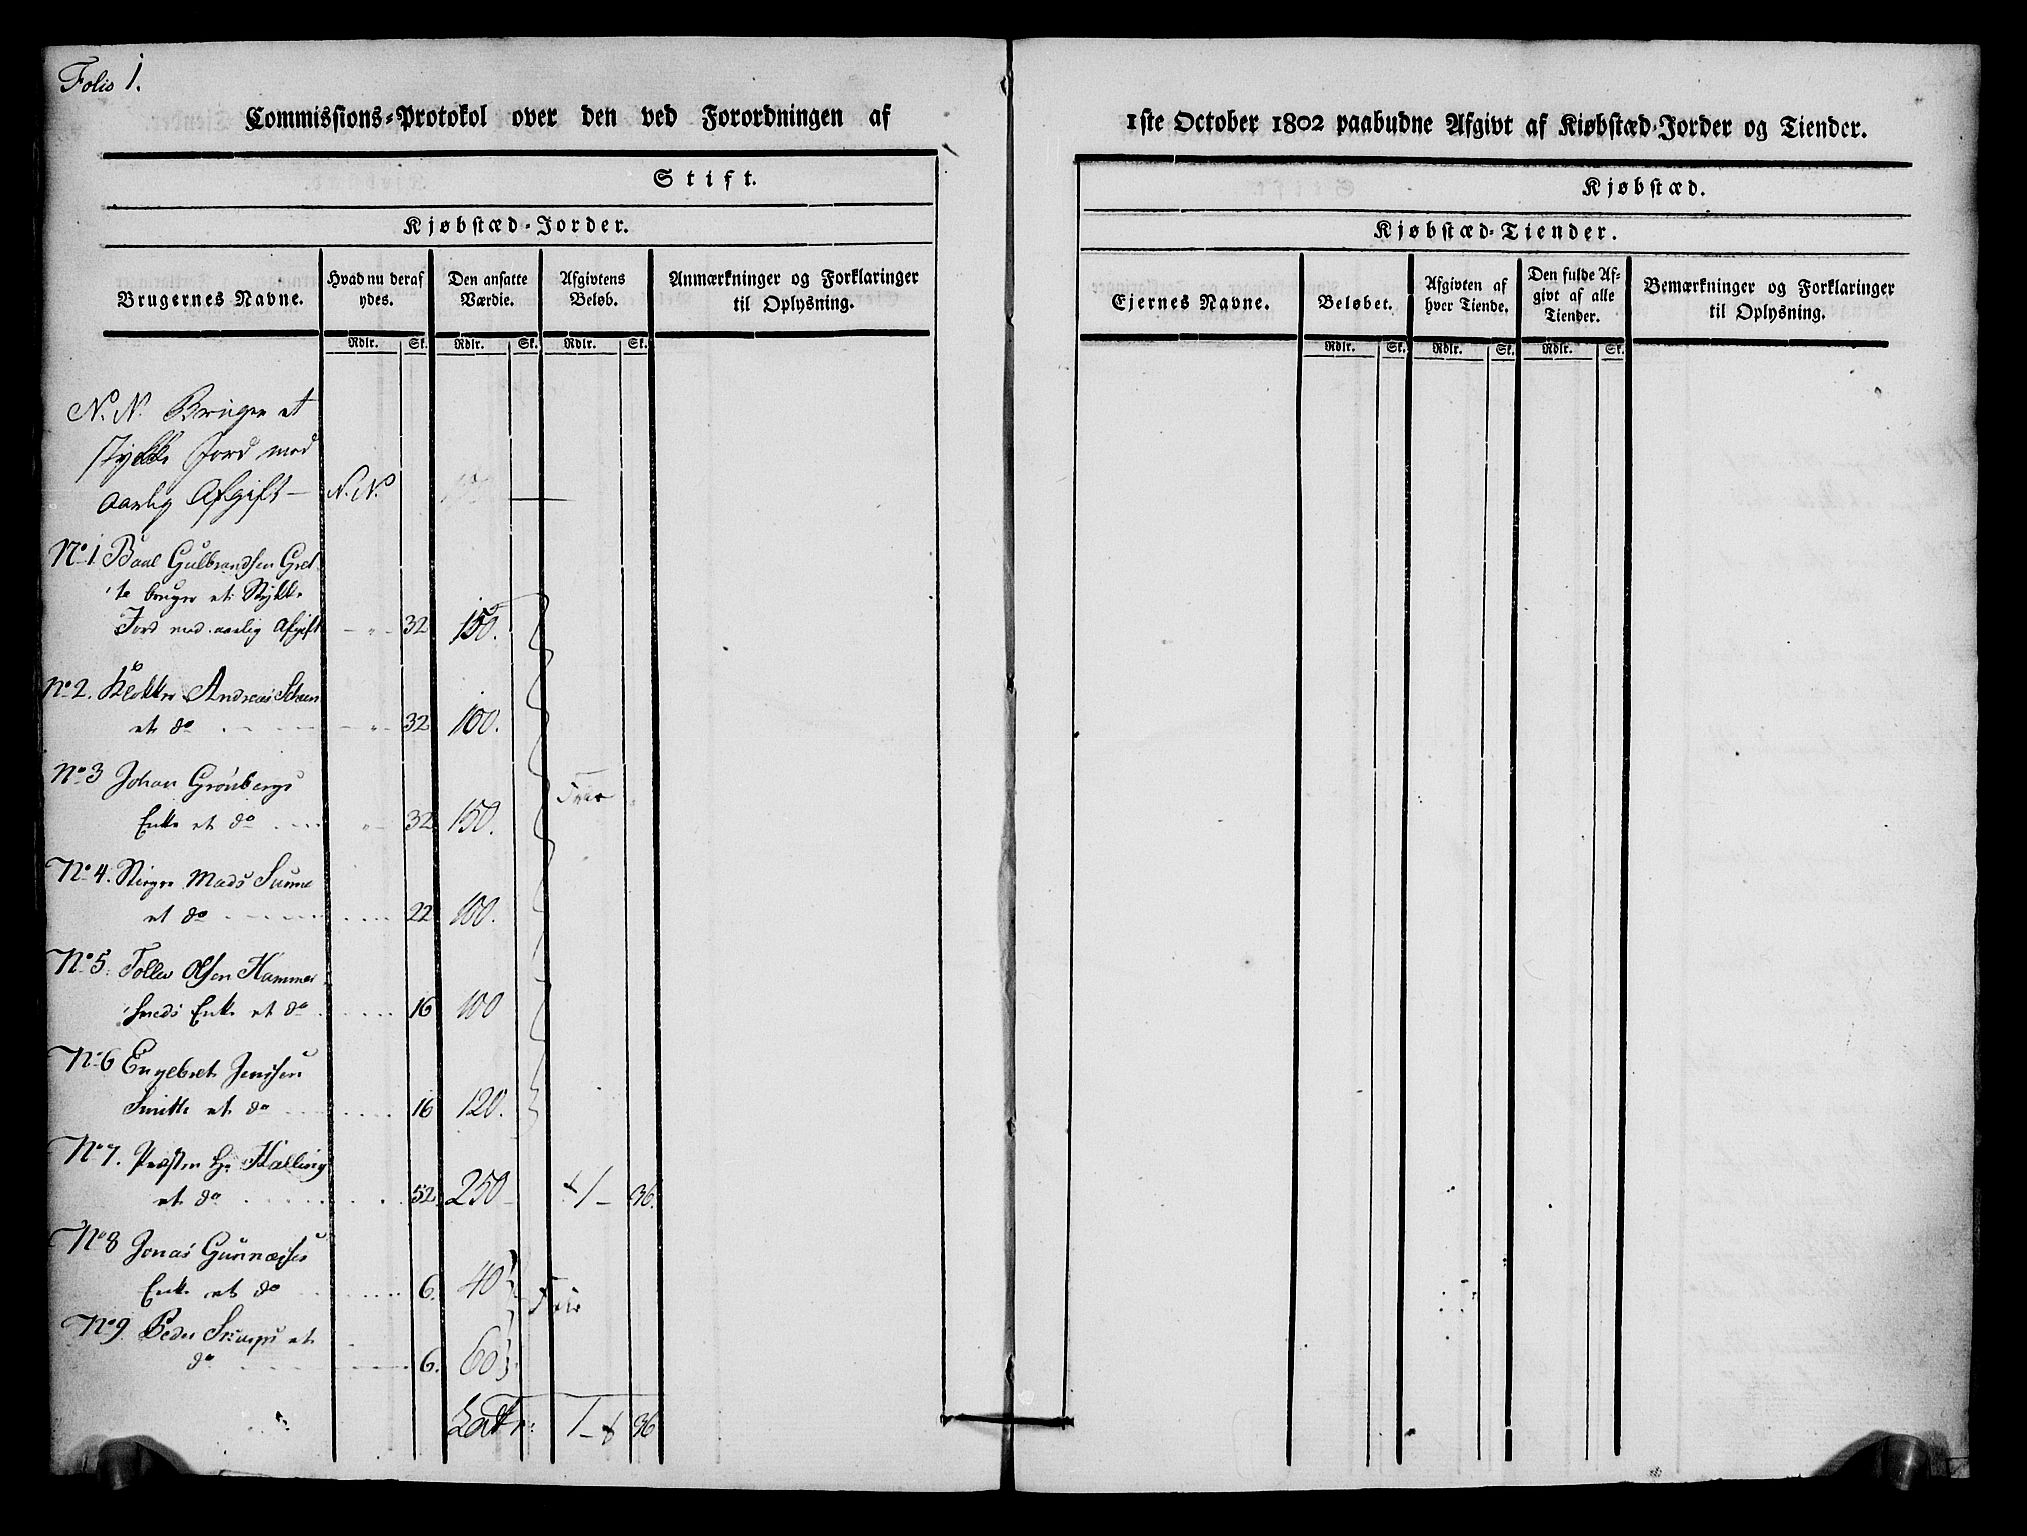 Folio 1.
Commissions-Protokol over den ved Forordningen af
Stift.
Kjøbstæd-Jorder.
Brugernes Navne.
Hvad nu deraf ydes.
Den ansatte Værdie.
Afgivtens Beløb.
Anmærkninger og Forklaringer til Oplysning.
Rdlr. Sk. Rdlr. Sk. Rdlr. Sk.
N. N. Bruger et
stykke Jord mod
aarlig Afgift — N. N.
No 1 Gulbrandsen
bruger et Stykke
Jord mod aarlig Afgift - " - 32 150.
No 2. Klokker Andreas
et do - " - 32 100.
No 3 Johan Grönbergs
Enke et do " - 32 150. Frie
No 4. Mads
et do 22 100.
No 5. Tollev Olsen Hammer
Enke et do 16 100
No 6 Engebret Jenssen
et do 16 120.
No 7. Præsten Hr Kælling
et do 52 250 1 - 36.
No 8 Jonas
Enke et do 6. 40 Frie
No 9 Peder et
do 6. 60
1 - 36
1ste October 1802 paabudne Afgivt af Kiøbstæd-Jorder og Tiender.
Kjøbstæd.
Kjøbstæd-Tiender.
Ejernes Navne.
Beløbet.
Afgivten af hver Tiende.
Den fulde Afgivt af alle Tiender.
Bemærkninger og Forklaringer til Oplysning.
Rdlr. Sk. Rdlr. Sk. Rdlr. Sk.